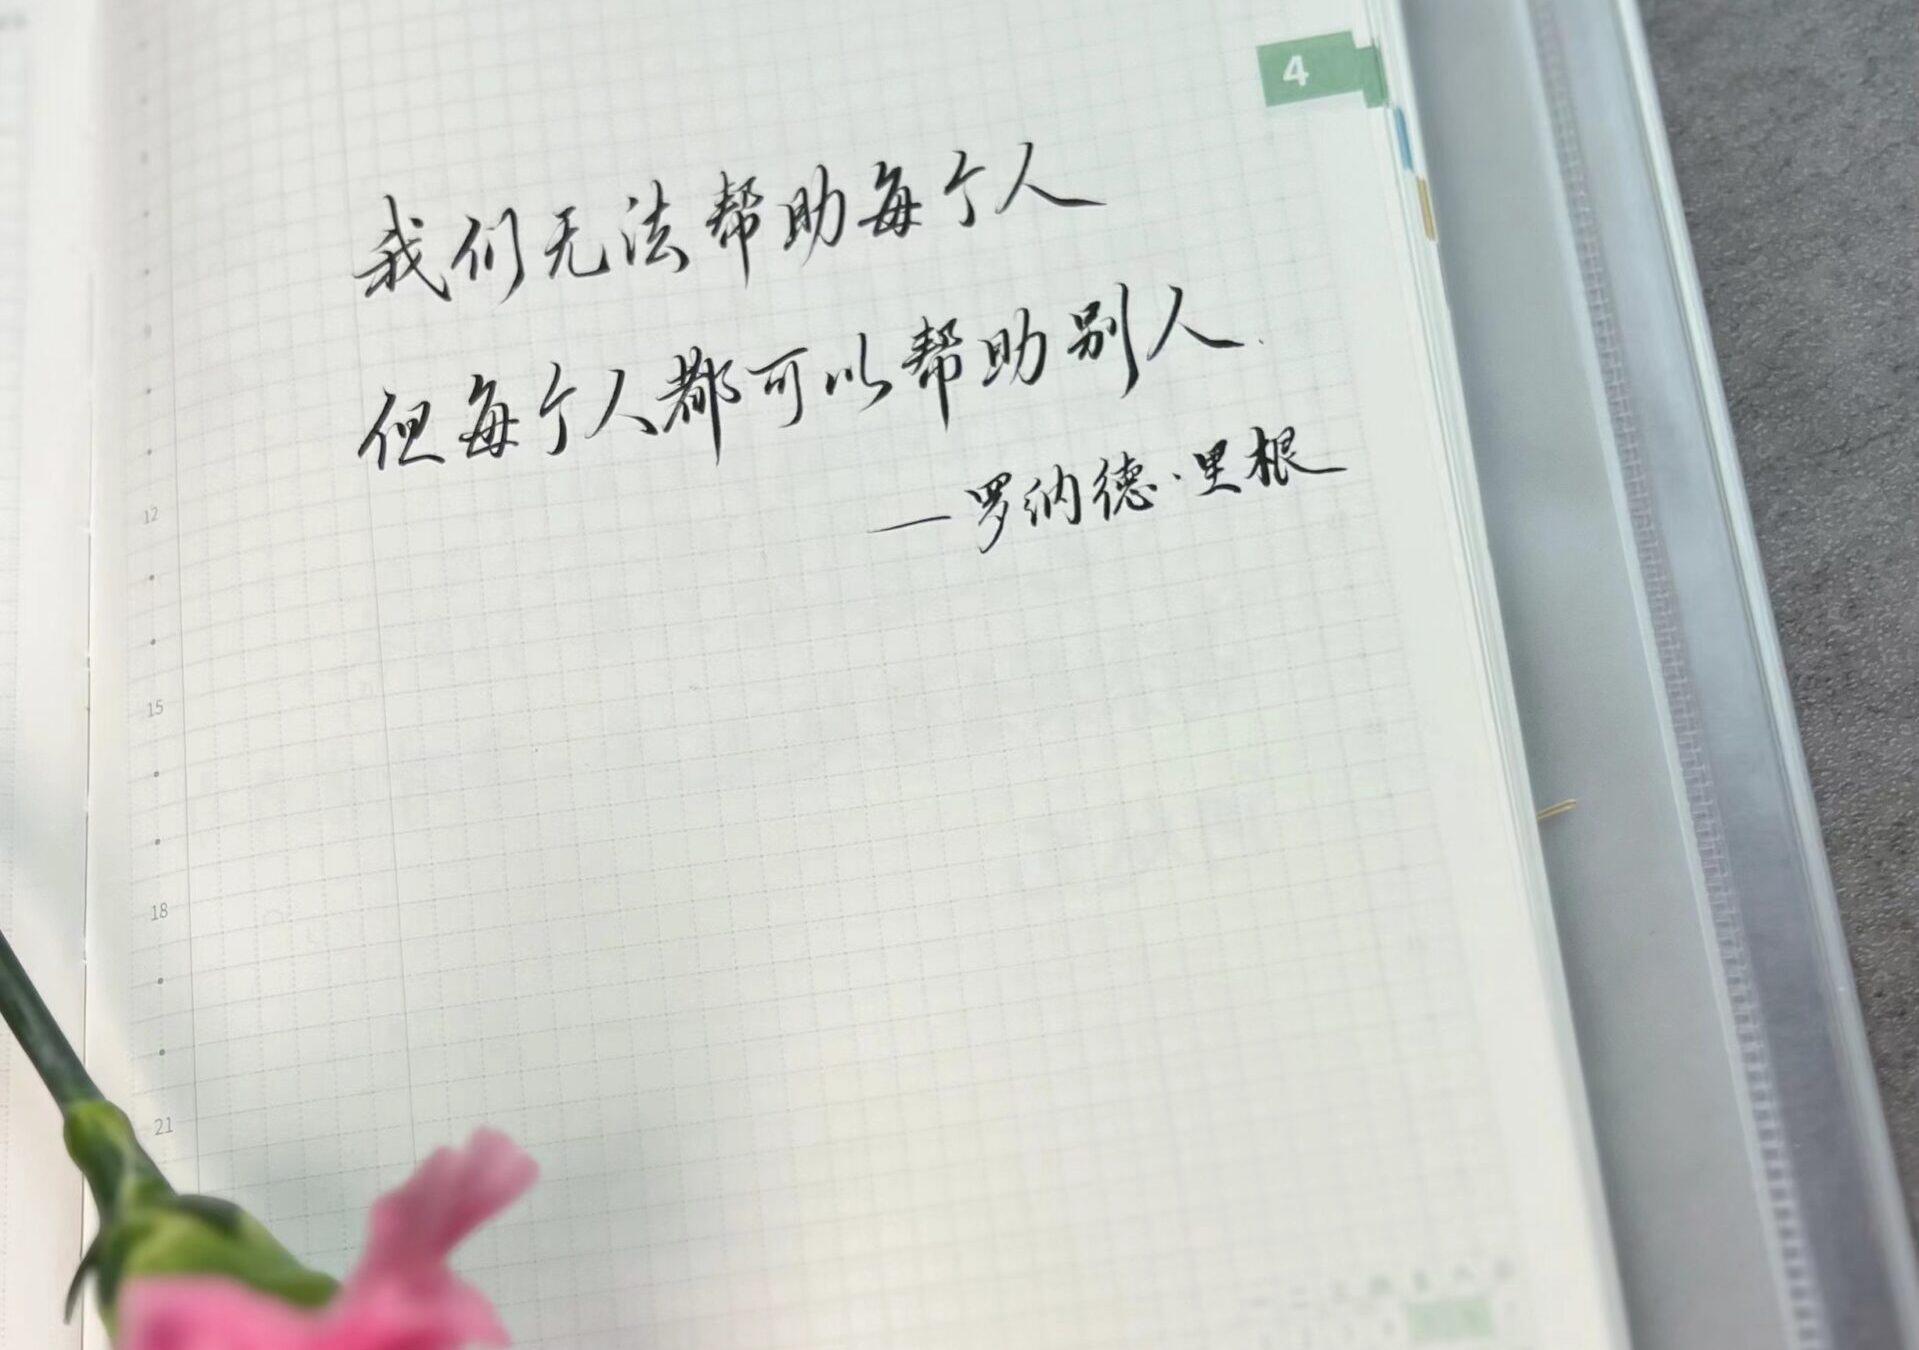 4
我们无法帮助每个人
但每个人都可以帮助别人
—罗纳德·里根
12
15
18
21